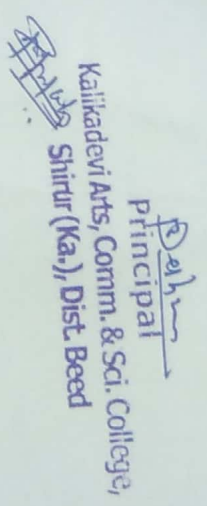 Principal
Kalikadevi Arts, Comm. & Sci. College,
Shirur (Ka.), Dist. Beed